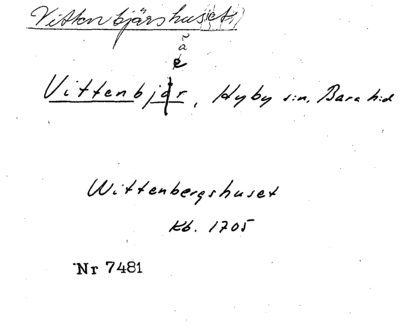 Vittenbjärshus(et)
ã
e
Vittenbjär, Hyby s:n, Bara h:d
Wittenbergshuset
Kb. 1705
Nr 7481